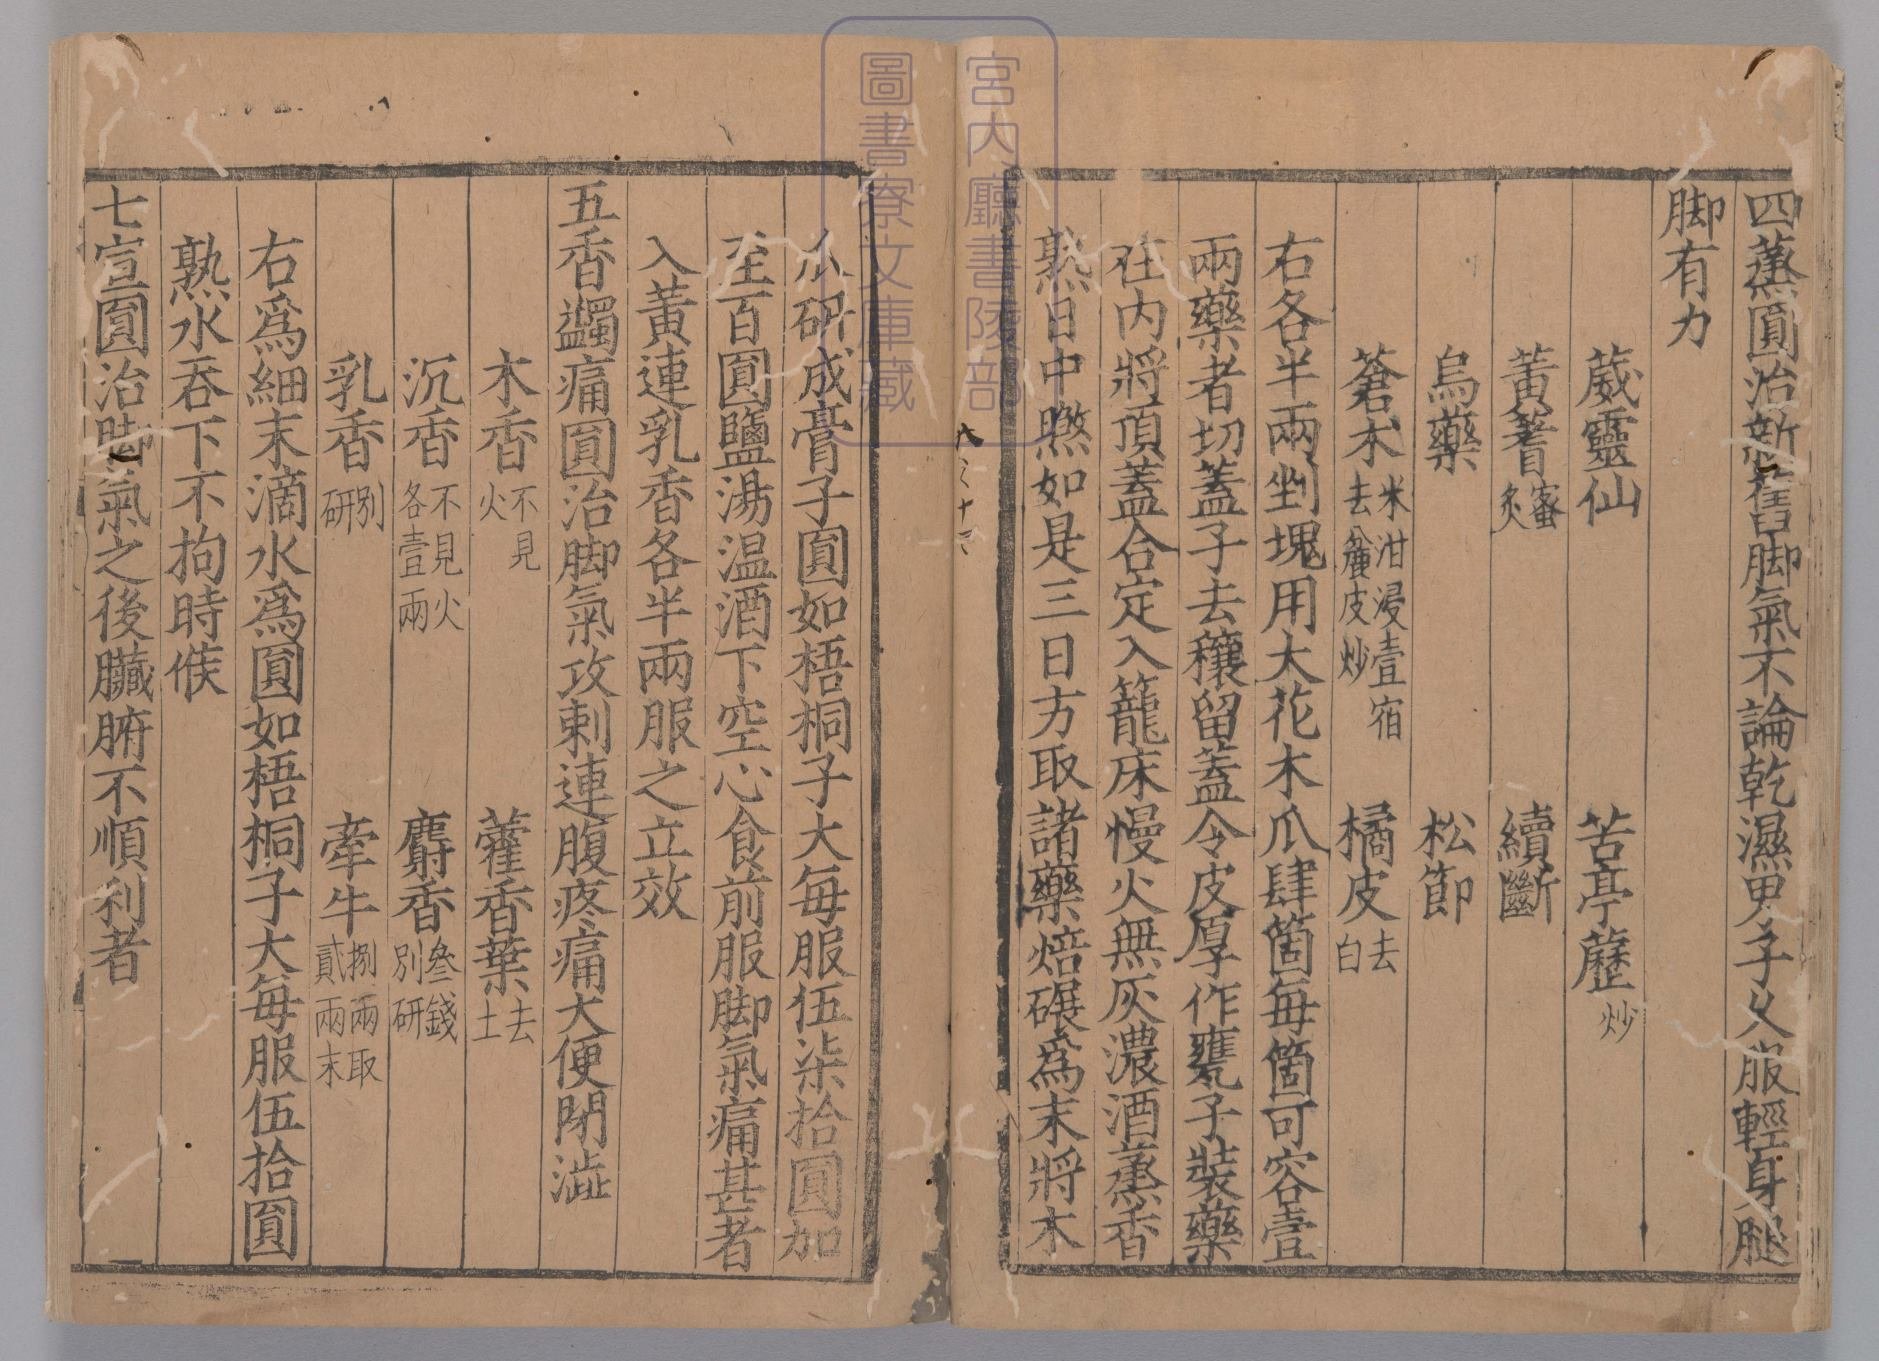 四蒸圓治新舊脚氣不論乾濕男子乂服輕身腿
脚有力
葳靈仙　苦亭藶炒
黃蓍蜜炙　續斷
烏藥　松節
蒼朮米泔浸壹宿去皮炒　橘皮去白
右各半兩剉塊用大花木爪肆箇每箇可容壹
兩藥者切蓋子去穰留蓋令皮厚作甕子裝藥
在內將頂蓋合定入籠床慢火無灰濃酒蒸香
熟日中㬠如是三日方取諸藥焙碾爲末將木
爪研成膏子圓如梧桐子大每服伍柒拾圓加
至百圓鹽湯温酒下空心食前服脚氣痛甚者
入黃連乳香各半兩服之立效
五香蠲痛圓治脚氣攻刺連腹疼痛大便閉澁
木香不見火　藿香葉去土
沉香不見火各壹兩　麝香叄錢別研
乳香別研　牽牛捌兩取貳兩末
右爲細末滴水爲圓如梧桐子大每服伍拾圓
熟水吞下不拘時候
七宣圓治脚氣之後臟腑不順利者
宮內廳書陵部
圖書寮文庫藏